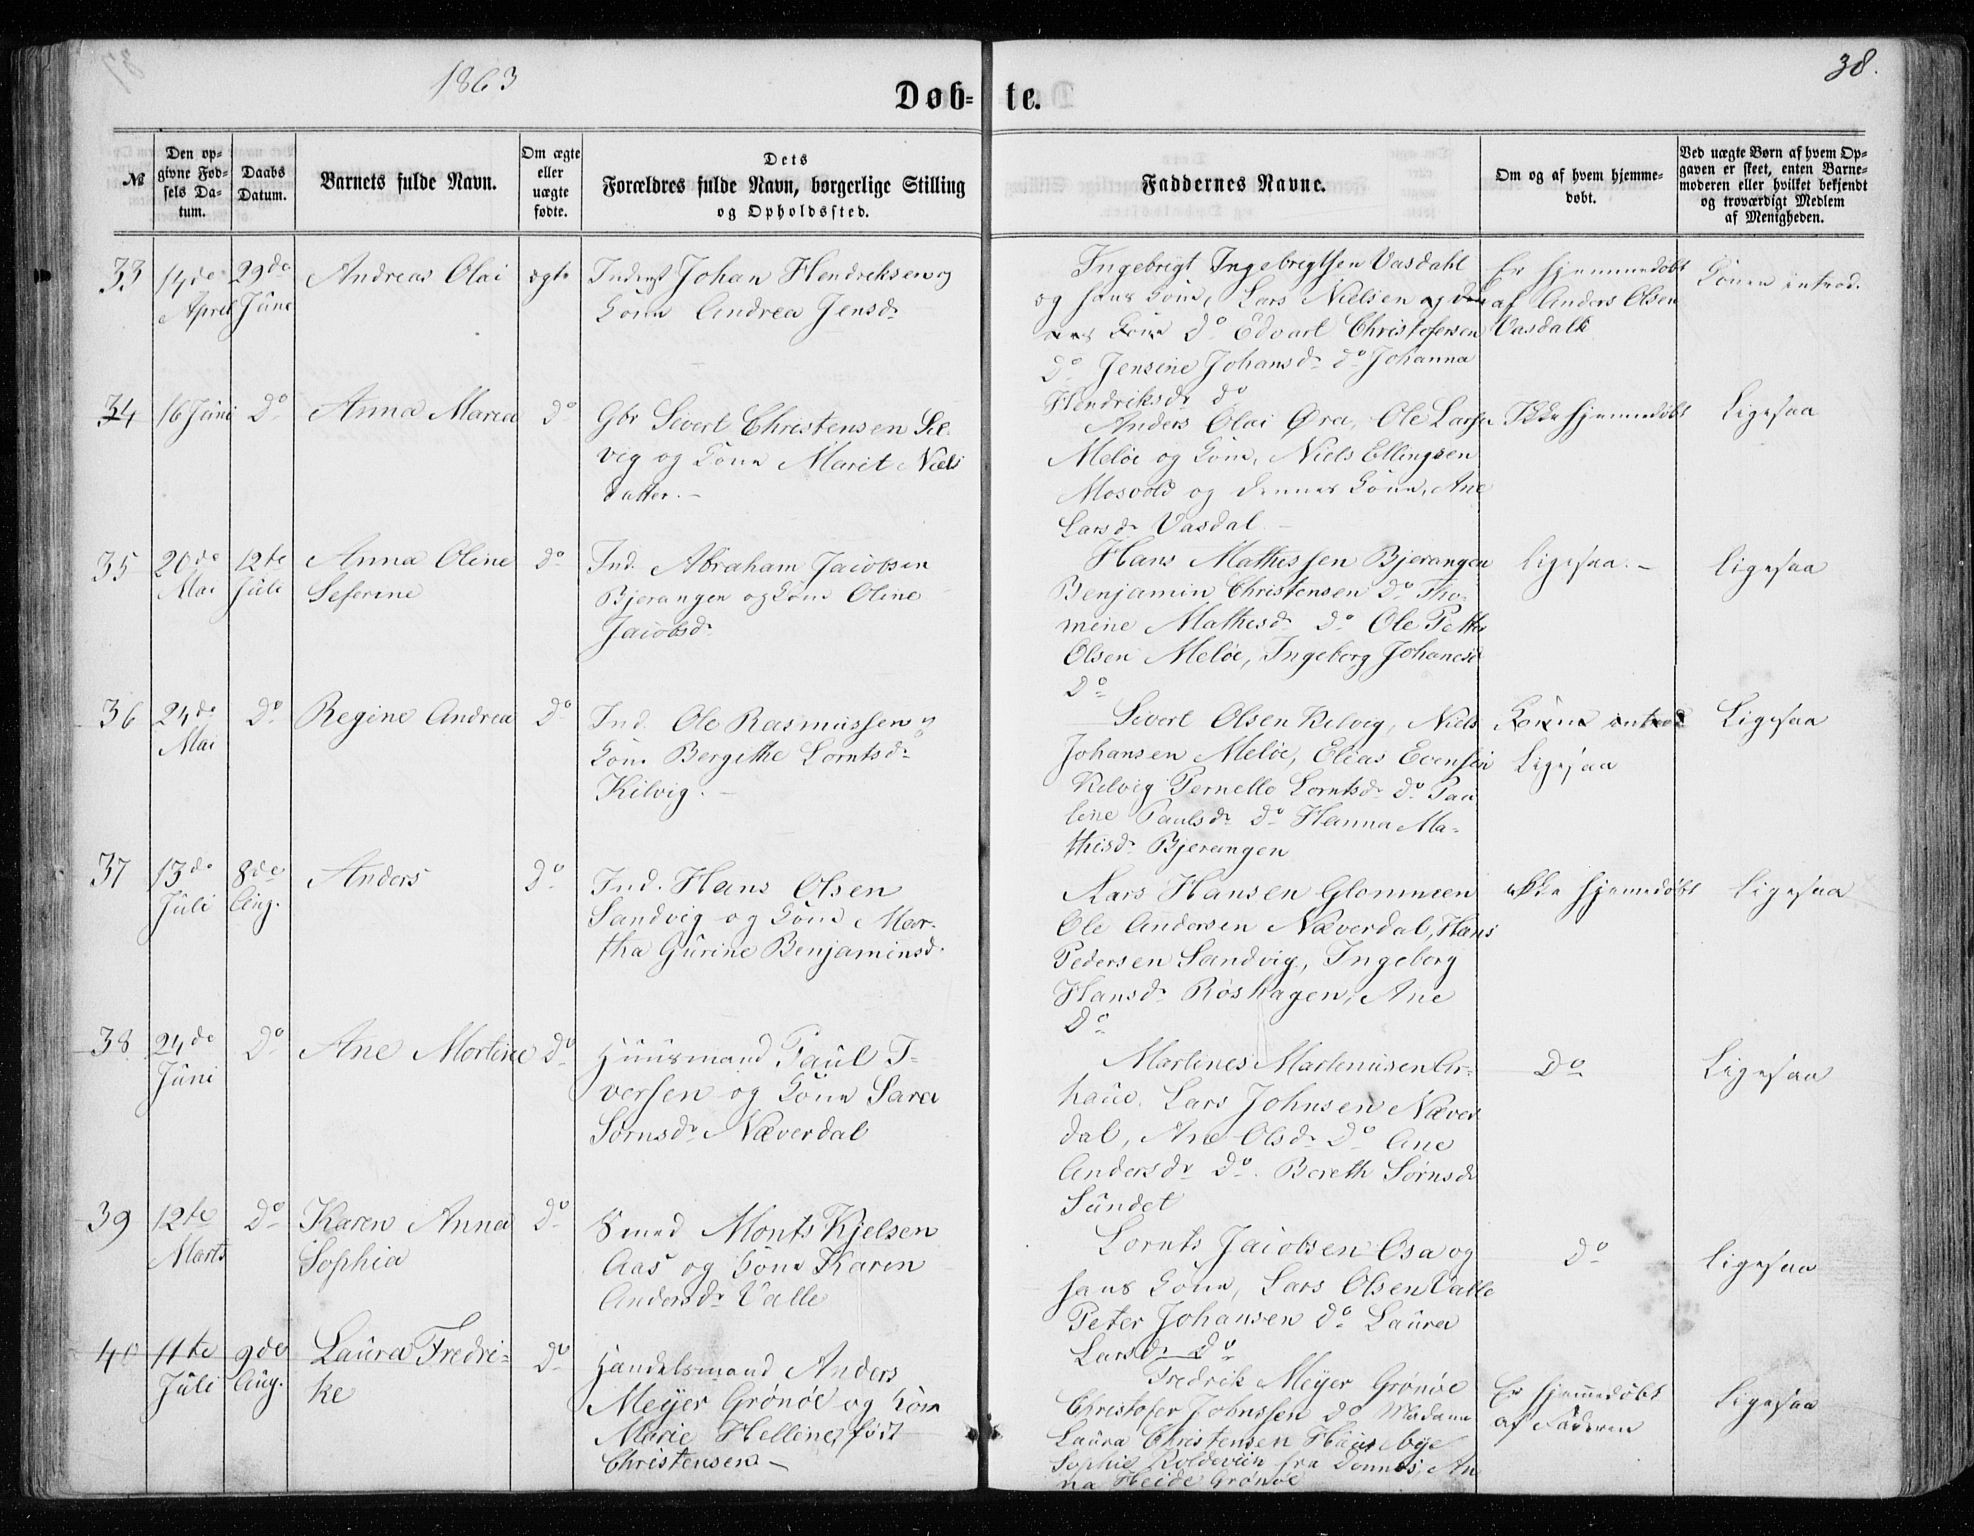 1863
38.
Døb-
te.
№
Den op-
givne Fød-
sels Da-
tum.
Daabs
Datum.
Barnets fulde Navn.
Om ægte
eller
uægte
fødte.
Dets
Forældres fulde Navn, borgerlige Stilling
og Opholdssted.
Faddernes Navne.
Om og af hvem hjemme-
døbt.
Ved uægte Børn af hvem Op-
gaven er skeet, enten Barne-
moderen eller hvilket bekjendt
og troværdigt Medlem
af Menigheden.
33
14de
April
29de
Juni
Andreas Olai
ægte
Inderst Johan Hendriksen og
Kone Andrea Jensdr
Ingebrigt Ingebrigtsen Vasdahl
og hans Kone, Lars Nielsen og den
nes Kone Do Edvart Christofersen
Do Jensine Johansdr Do Johanna
Hendriksdr Do
Er hjemmedøbt
af Anders Olsen
Vasdahl
Konen introd.
34
16 Juni
Do
Anna Maria
Do
Gbr Sivert Christensen Sel-
vig og Kone Marit Niels
datter.-
Anders Olai Øra, Ole Larsen
Meløe og Kone, Niels Ellingsen
Mosvold og dennes Kone, Ane
Larsdr Vasdal -
Ikke hjemmedøbt
Ligesaa
35
20de
Mai
12te
Juli
Anna Oline
Seferine
Do
Ind. Abraham Jacobsen
Bjerangen og Kone Oline
Jacobsdr
Hans Mathessen Bjerangen
Benjamin Christensen Do Tho-
mine Mathisdr Do Ole Petter
Olsen Meløe, Ingeborg Johanesd
Do
Ligesaa.-
Ligesaa
36
24de
Mai
Do
Regine Andrea
Do
Ind. Ole Rasmussen og
Kone Bergithe Lorntsdr
Kilvig.-
Sivert Olsen Kelvig, Niels
Johansen Meløe, Elias Evensen
Kelvig Pernelle Lorntsdr Do Pau
line Paulsdr Do Hanna Ma-
thisdr Bjerangen
Konen introd
Ligesaa
Ligesaa
37
13de
Juli
8de
Aug.
Anders
Do
Ind. Hans Olsen
Sandvig og Kone Mar-
tha Gurine Benjaminsd.
Lars Hansen Glommen
Ole Andersen Næverdal, Hans
Pedersen Sandvig, Ingeborg
Hansdr Røshagen, Ane
Do
ikke hjemedøbt
Ligesaa
38
24de
Juni
Do
Ane Mortine
Do
Huusmand Paul I-
versen og Kone Sara
Sørnsdr Næverdal
Martines Martinusen
Lars Johnsen Næver
dal, Ane Olsdr Do Ane
Andersdr Do. Bereth Sørnsdr
Sundet
Do
Ligesaa
39
12te
Marts
Do
Karen Anna
Sophia
Do
Smed Monts Kjelsen
Aas og Kone Karen
Andersdr Valle
Lornts Jacobsen Osa og
hans Kone, Lars Olsen Valle
Peter Johansen Do Laura
Larsdr Do
Do
Ligesaa
40
11te
Juli
9de
Aug.
Laura Fredri-
ke
Do
Handelsmand Anders
Meyer Grønøe og Kone
Marie Helline, født
Christensen.-
Fredrik Meyer Grønøe
Christofer Johnssen Do Madame
Laura Christensen Huusebye
Sophie Koldeviin fra Dønnes, An
na Heide Grønøe
Er hjemmedøbt
af Faderen
Ligesaa